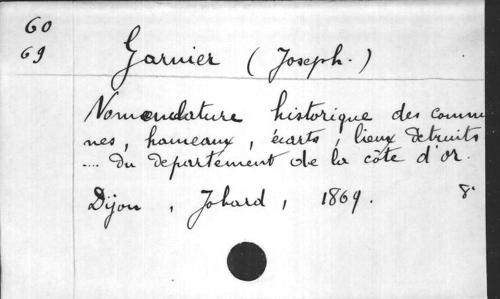 60
69
Garnier (Joseph.)
Nomenclature historique des commu
nes, hameaux, écarts, lieux détruits
.... du département de la côte d'or.
Dijon, Jobard, 1869. 8°